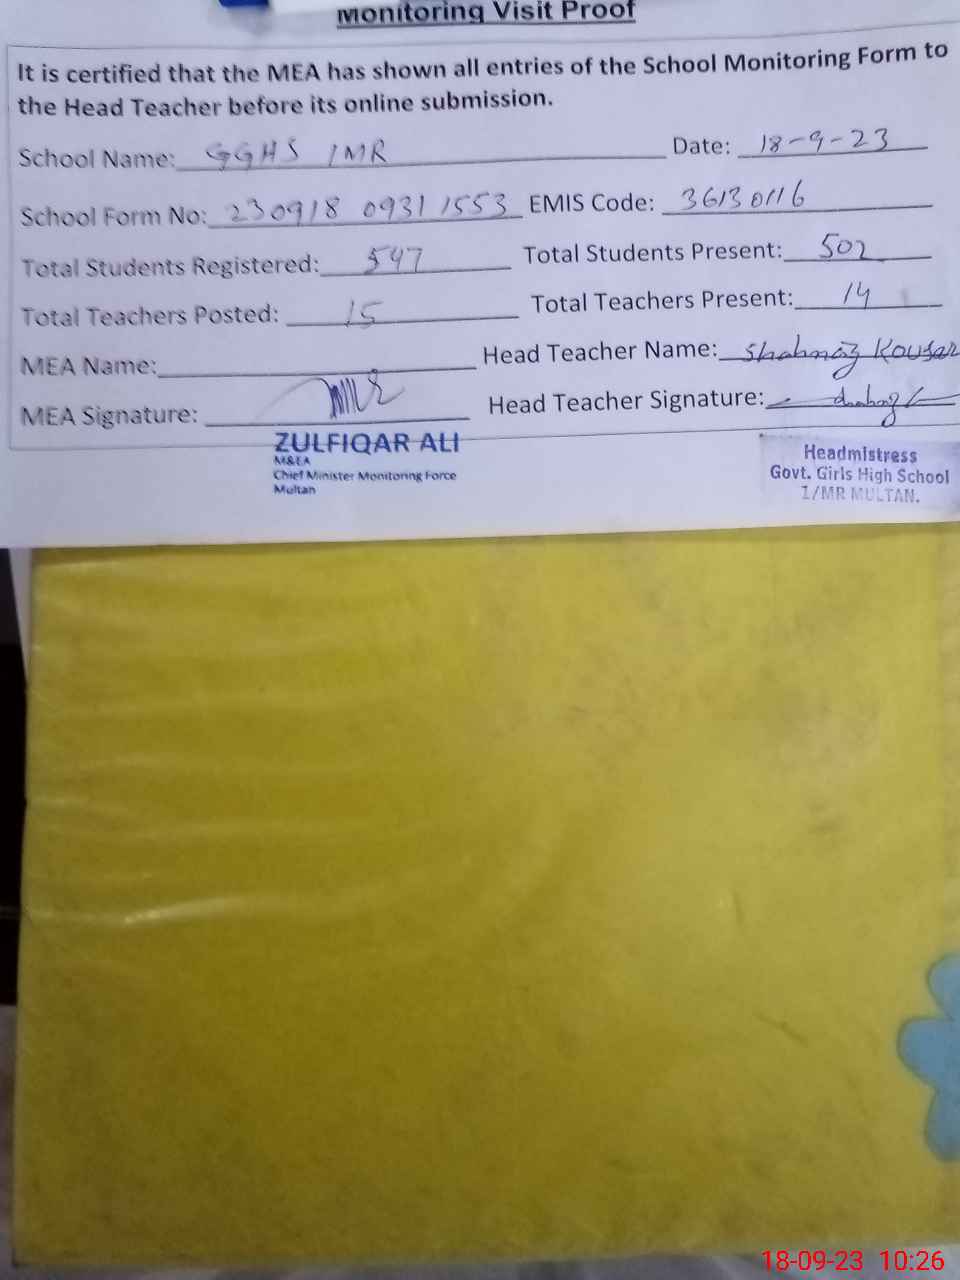 Monitoring Visit Proof
It is certified that the MEA has shown all entries of the School Monitoring Form to
the Head Teacher before its online submission.
School Name: GGHS 1MR Date: 18-9-23
School Form No: 230918 0931 1553 EMIS Code: 36130116
Total Students Registered: 547 Total Students Present: 502
Total Teachers Posted: 15 Total Teachers Present: 14
MEA Name: Head Teacher Name: Shahnaz Kousar
MEA Signature: Head Teacher Signature:
ZULFIQAR ALI
M&EA
Chief Minister Monitoring Force
Multan
Headmistress
Govt. Girls High School
1/MR MULTAN.
18-09-23 10:26